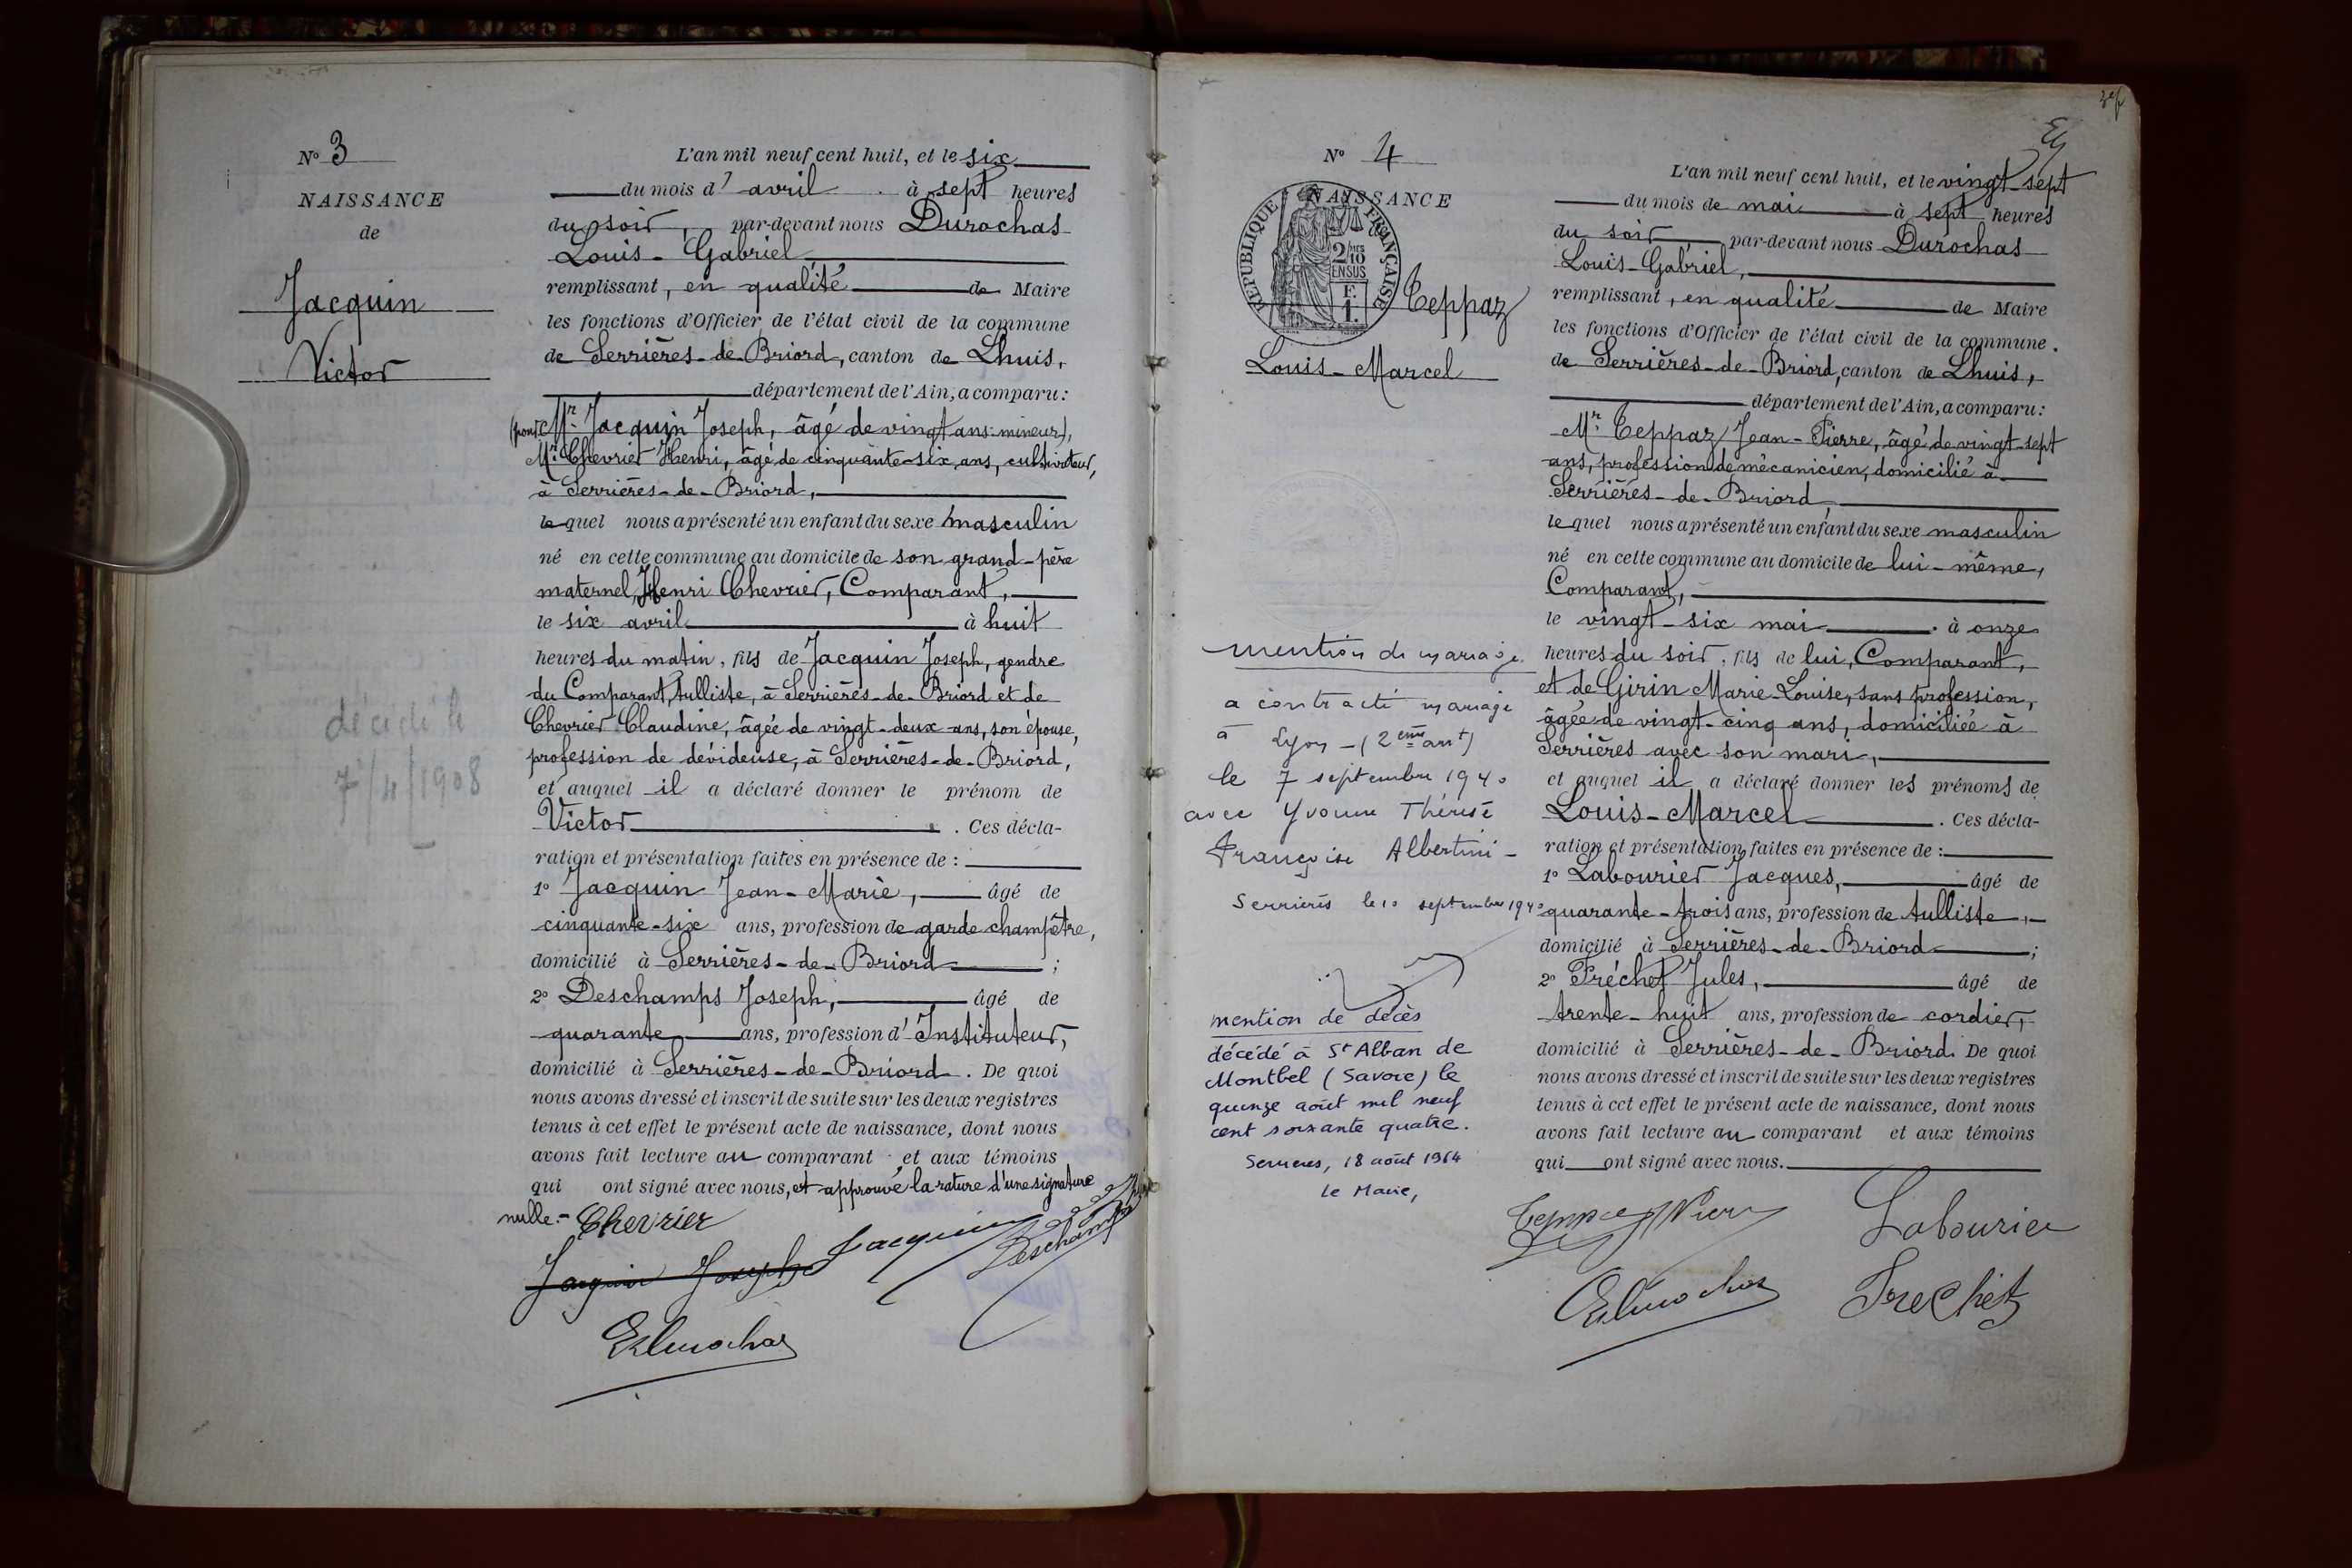 N° 3
NAISSANCE
de
Jacquin
Victor
décédé le
7/4/1908
L'an mil neuf cent huit, et le six
du mois d' avril à sept heures
du soir, par-devant nous Durochas
Louis-Gabriel
remplissant, en qualité de Maire
les fonctions d'Officier de l'état civil de la commune
de Serrières-de-Briord, canton de Lhuis,
département de l'Ain, a comparu:
Mr Jacquin Joseph, âgé de vingt ans mineur),
Mr Chevrier Henri, âgé de cinquante-six ans, cultivateur,
à Serrières-de-Briord,
lequel nous a présenté un enfant du sexe masculin
né en cette commune au domicile de son grand-père
maternel, Henri Chevrier, Comparant,
le six avril à huit
heures du matin, fils de Jacquin Joseph, gendre
du Comparant, tulliste, à Serrières-de-Briord et de
Chevrier Claudine, âgée de vingt-deux ans, son épouse,
profession de dévideuse, à Serrières-de-Briord,
et auquel il a déclaré donner le prénom de
Victor. Ces décla-
ration et présentation faites en présence de :
1° Jacquin Jean-Marie, âgé de
cinquante-six ans, profession de garde champêtre,
domicilié à Serrières-de-Briord ;
2° Deschamps Joseph, âgé de
quarante ans, profession d'Instituteur,
domicilié à Serrières-de-Briord. De quoi
nous avons dressé et inscrit de suite sur les deux registres
tenus à cet effet le présent acte de naissance, dont nous
avons fait lecture au comparant et aux témoins
qui ont signé avec nous, et approuvé la rature d'une signature
nulle.- Chevrier
Jacquin Joseph Jacquin Deschamps
Durochas
N° 4
NAISSANCE
RÉPUBLIQUE FRANÇAISE
2/10
EN SUS
F.
1.
Teppaz
Louis-Marcel
mention de mariage
a contracté mariage
à Lyon - (2ème arrt)
le 7 septembre 1940
avec Yvonne Thérèse
Françoise Albertini -
Serrières le 10 septembre 1940
mention de décès
décédé à St Alban de
Montbel (Savoie) le
quinze août mil neuf
cent soixante quatre.
Serrières, 18 août 1964
Le Maire,
L'an mil neuf cent huit, et le vingt-sept
du mois de mai à sept heures
du soir par-devant nous Durochas
Louis-Gabriel,
remplissant, en qualité de Maire
les fonctions d'Officier de l'état civil de la commune.
de Serrières-de-Briord, canton de Lhuis,
département de l'Ain, a comparu:
Mr Teppaz Jean-Pierre, âgé de vingt-sept
ans, profession de mécanicien, domicilié à
Serrières-de-Briord,
lequel nous a présenté un enfant du sexe masculin
né en cette commune au domicile de lui-même,
Comparant,
le vingt-six mai à onze
heures du soir, fils de lui, Comparant,
et de Girin Marie-Louise, sans profession,
âgée de vingt-cinq ans, domiciliée à
Serrières avec son mari,
et auquel il a déclaré donner les prénoms de
Louis-Marcel. Ces décla-
ration et présentation faites en présence de :
1° Labourier Jacques, âgé de
quarante-trois ans, profession de tulliste,
domicilié à Serrières-de-Briord ;
2° Fréchet Jules, âgé de
trente-huit ans, profession de cordier,
domicilié à Serrières-de-Briord. De quoi
nous avons dressé et inscrit de suite sur les deux registres
tenus à cet effet le présent acte de naissance, dont nous
avons fait lecture au comparant et aux témoins
qui ont signé avec nous.
Teppaz Pierre Labourier
Durochas Frechet